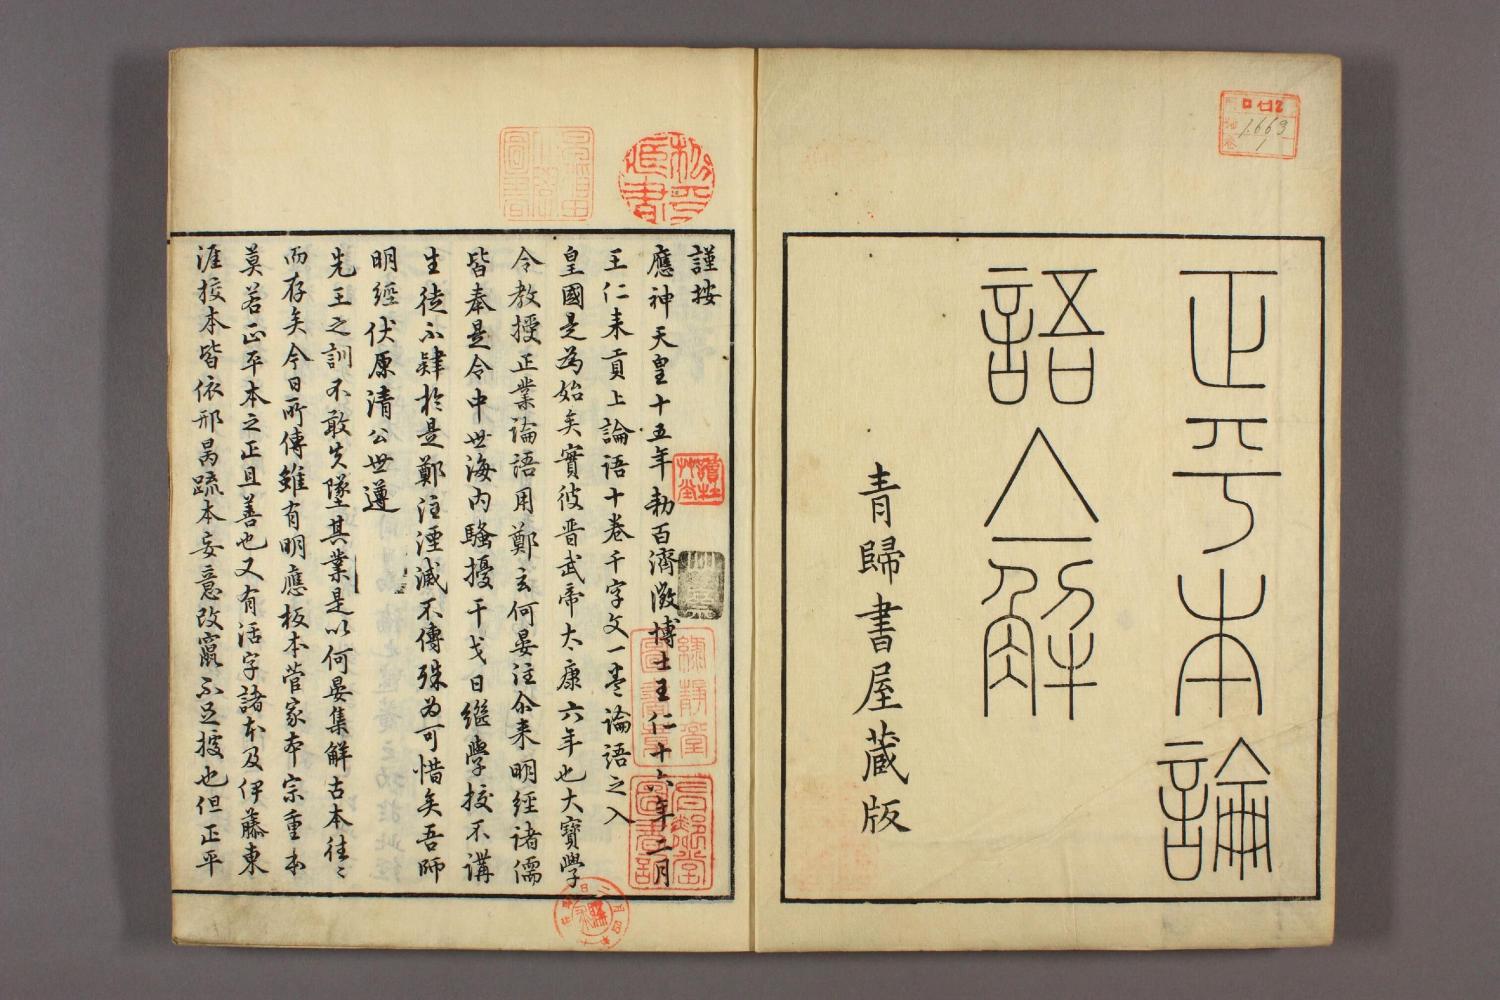 正平本論
語集解
青歸書屋藏版
謹按
應神天皇十五年勅百濟徵博士王仁十六年二月
王仁来貢上論語十卷千字文一卷論語之入
皇國是為始矣實彼晋武帝太康六年也大寶學
令教授正業論語用鄭玄何晏注尒来明經諸儒
皆奉是令中世海内騷擾干戈日継學挍不講
生徒不肄於是鄭注湮滅不傳殊為可惜矣吾師
明經伏原清公世遵
先王之訓不敢失墜其業是以何晏集解古本往〻
而存矣今日所傳雖有明應板本菅家本宗重本
莫若正平本之正且善也又有活字諸本及伊藤東
涯挍本皆依邢昺疏本妄意改竄不足據也但正平